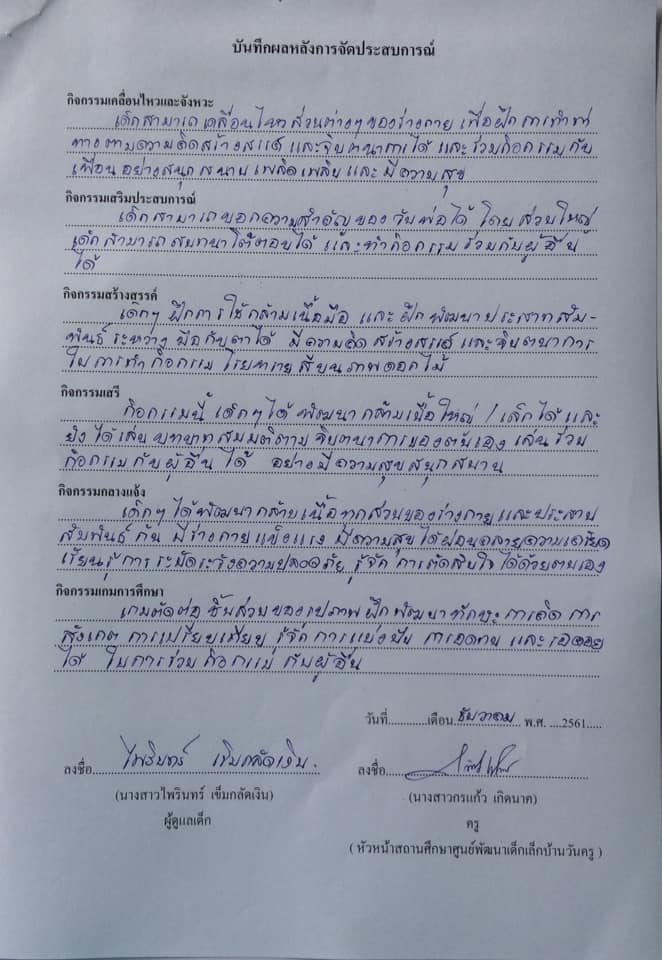 บันทึกผลหลังการจัดประสบการณ์
กิจกรรมเคลื่อนไหวและจังหวะ
เด็กสามารถเคลื่อนไหวส่วนต่างๆของร่างกาย เพื่อฝึกการทำท่า
ทางตามความคิดสร้างสรรค์ และจินตนาการได้ และร่วมกิจกรรมกับ
เพื่อนอย่างสนุกสนาน เพลิดเพลินและมีความสุข
กิจกรรมเสริมประสบการณ์
เด็กสามารถบอกความสำคัญของวันพ่อได้ โดยส่วนใหญ่
เด็กสามารถสนทนาโต้ตอบได้ และทำกิจกรรมร่วมกับผู้อื่น
ได้
กิจกรรมสร้างสรรค์
เด็กๆ ฝึกการใช้กล้ามเนื้อมือ และฝึกพัฒนาประสาทสัม-
พันธ์ระหว่างมือกับตาได้ มีความคิดสร้างสรรค์และจินตนาการ
ในการทำกิจกรรม โรยทรายสีบนภาพดอกไม้
กิจกรรมเสรี
กิจกรรมนี้ เด็กๆได้พัฒนากล้ามเนื้อใหญ่ / เล็กได้และ
ยังได้เล่นบทบาทสมมติตามจินตนาการของตนเอง เล่นร่วม
กิจกรรมกับผู้อื่นได้ อย่างมีความสุขสนุกสนาน
กิจกรรมกลางแจ้ง
เด็กๆได้พัฒนากล้ามเนื้อทุกส่วนของร่างกายและประสาท
สัมพันธ์กัน มีร่างกายแข็งแรง มีความสุขได้ผ่อนคลายความเครียด
เรียนรู้การระมัดระวังความปลอดภัย รู้จักการตัดสินใจได้ด้วยตนเอง
กิจกรรมเกมการศึกษา
เกมตัดต่อชิ้นส่วนของรูปภาพ ฝึกพัฒนาทักษะการคิด การ
สังเกต การเปรียบเทียบ รู้จักการแบ่งปัน การอดทน และรอคอย
ได้ ในการร่วมกิจกรรมกับผู้อื่น
วันที่............เดือน ธันวาคม พ.ศ. ....2561.....
ลงชื่อ ไพรินทร์ เข็มกลัดเงิน. ลงชื่อ
(นางสาวไพรินทร์ เข็มกลัดเงิน) (นางสาวกรแก้ว เกิดนาค)
ผู้ดูแลเด็ก ครู
( หัวหน้าสถานศึกษาศูนย์พัฒนาเด็กเล็กบ้านวันครู )